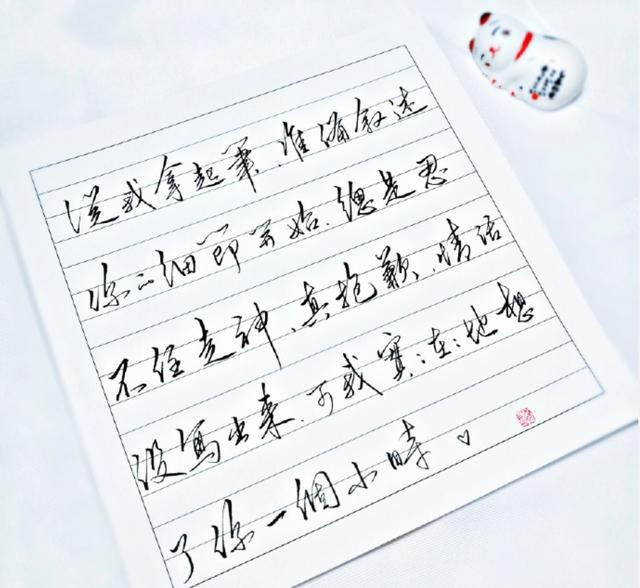 從我拿起筆、准備叙述
你的細節開始、總是忍
不住走神、真抱歉、情话
沒寫出來、可我實:在:地想
了你一個小時♡